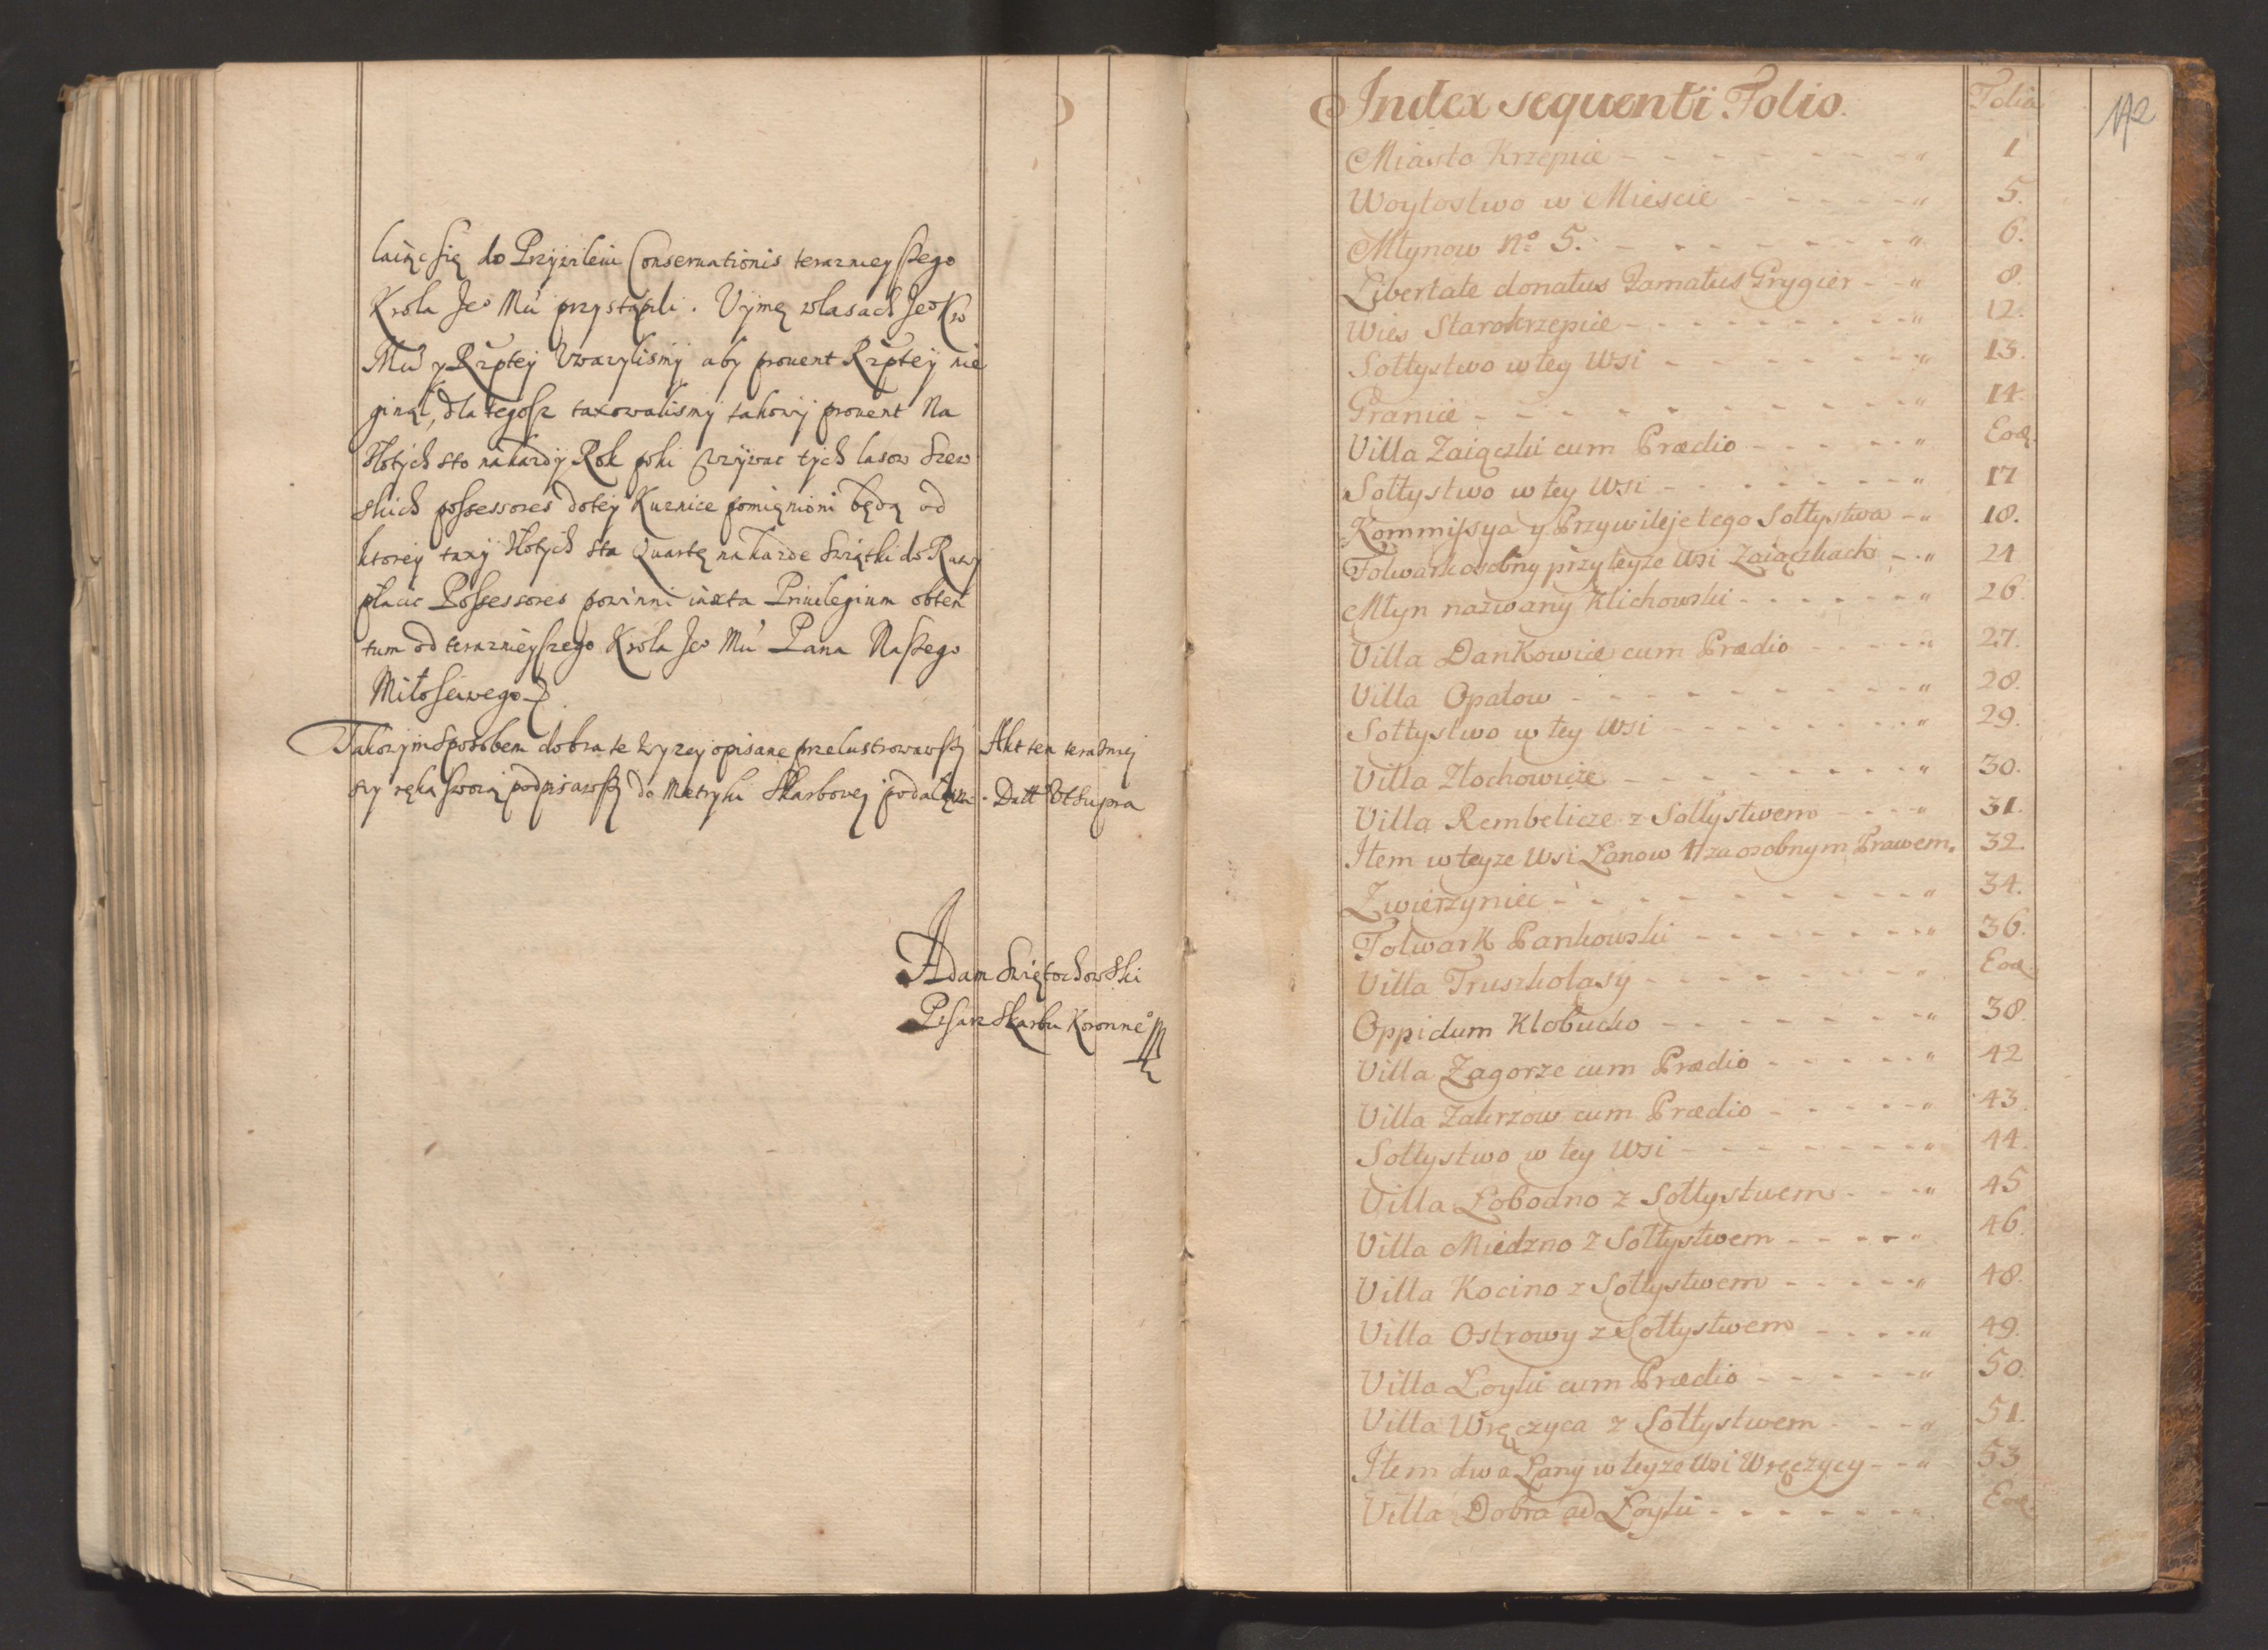 laiąc się do Przywileiu Conseruationis teraznieyszego
Krola Je° Mći przystąpili. Vymę wlasach Je° Kr
Mći y Rzptey Vwazylismy aby prouent Rzptey nie
ginął, dla tegosz taxowalismy takowy prouent Na
złotych sto nakazdy Rok poki vzywac tych lasow Szew
skich possessores dotey Kuznice pomięnioni będą od
ktorey taxy złotych sta Quartę nakazde Swiątki do Rawy
płacic Possessores powinni iuxta Priuilegium obten
tum od teraznieyszego Krola Je° Mći Pana Naszego
Miłosciwego
Takowym sposobem dobra te wyzey opisane przelustrowawszy Akt ten teraźniey
szy ręką swoią podpisawszy do Metryki Skarbowey podalismy. Datt Vt Supra
Adam Swięcochowski
Pisarz Skarbu Koronne°
Index sequenti Folio.
Folia
142
Miasto Krzepice - - - - - - - „ 1
Woytostwo w Miescie - - - - - „ 5.
Młynow N° 5. - - - - - - - „ 6.
Libertate donatus Famatus Grygier - - „ 8.
Wies Starokrzepice - - - - - - - „ 12.
Sołtystwo w tey Wsi - - - - - - „ 13.
Granice - - - - - - - - - „ 14.
Villa Zaiączki cum Prædio - - - - - „ Eod.
Sołtystwo w tey Wsi - - - - - - - „ 17
Kommissya y Przywileje tego Sołtystwa - „ 18.
Folwark osobny przy teyze Wsi Zaiączkach - „ 21
Młyn nazwany Klichowski - - - - - - „ 26.
Villa Dankowice cum Prædio - - - - „ 27.
Villa Opatow - - - - - - - - „ 28.
Sołtystwo w tey Wsi - - - - - - - „ 29.
Villa Złochowice - - - - - - - - „ 30.
Villa Rembelicze z Sołtystwem - - - „ 31.
Item w teyze Wsi Łanow 4 za osobnym Prawem „ 32.
Zwierzyniec - - - - - - - - „ 34.
Folwark Pankowski - - - - - - - „ 36.
Villa Truskolasy - - - - - - - „ Eod.
Oppidum Kłobucko - - - - - - - „ 38.
Villa Zagorze cum Prædio - - - - - „ 42
Villa Zakrzow cum Prædio - - - - - „ 43
Sołtystwo w tey Wsi - - - - - - - „ 44.
Villa Łobodno z Sołtystwem - - - „ 45
Villa Miedzno z Sołtystwem - - - - „ 46.
Villa Kocino z Sołtystwem - - - - - „ 48.
Villa Ostrowy z Sołtystwem - - - - „ 49.
Villa Łoyki cum Prædio - - - - - „ 50.
Villa Wręczyca z Sołtystwem - - - „ 51.
Item dwa Łany w teyze Wsi Wręczycy - - „ 53
Villa Dobra ad Łoyki - - - - - - „ Eod.